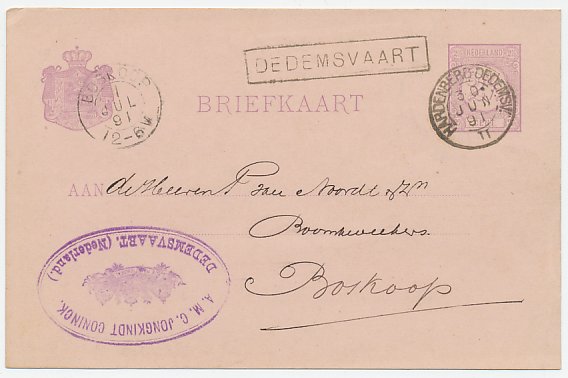 DEDEMSVAART
NEDERLAND
BOSKOOP
1
JUL
91
12-6N
HARDENBERG-DEDEMSV:
30
JUN
91
II
BRIEFKAART
AAN de Heeren P van Noordt & Zn
Boomkweekers.
Boskoop
A. M. C. JONGKINDT CONINCK.
DEDEMSVAART. (Nederland.)